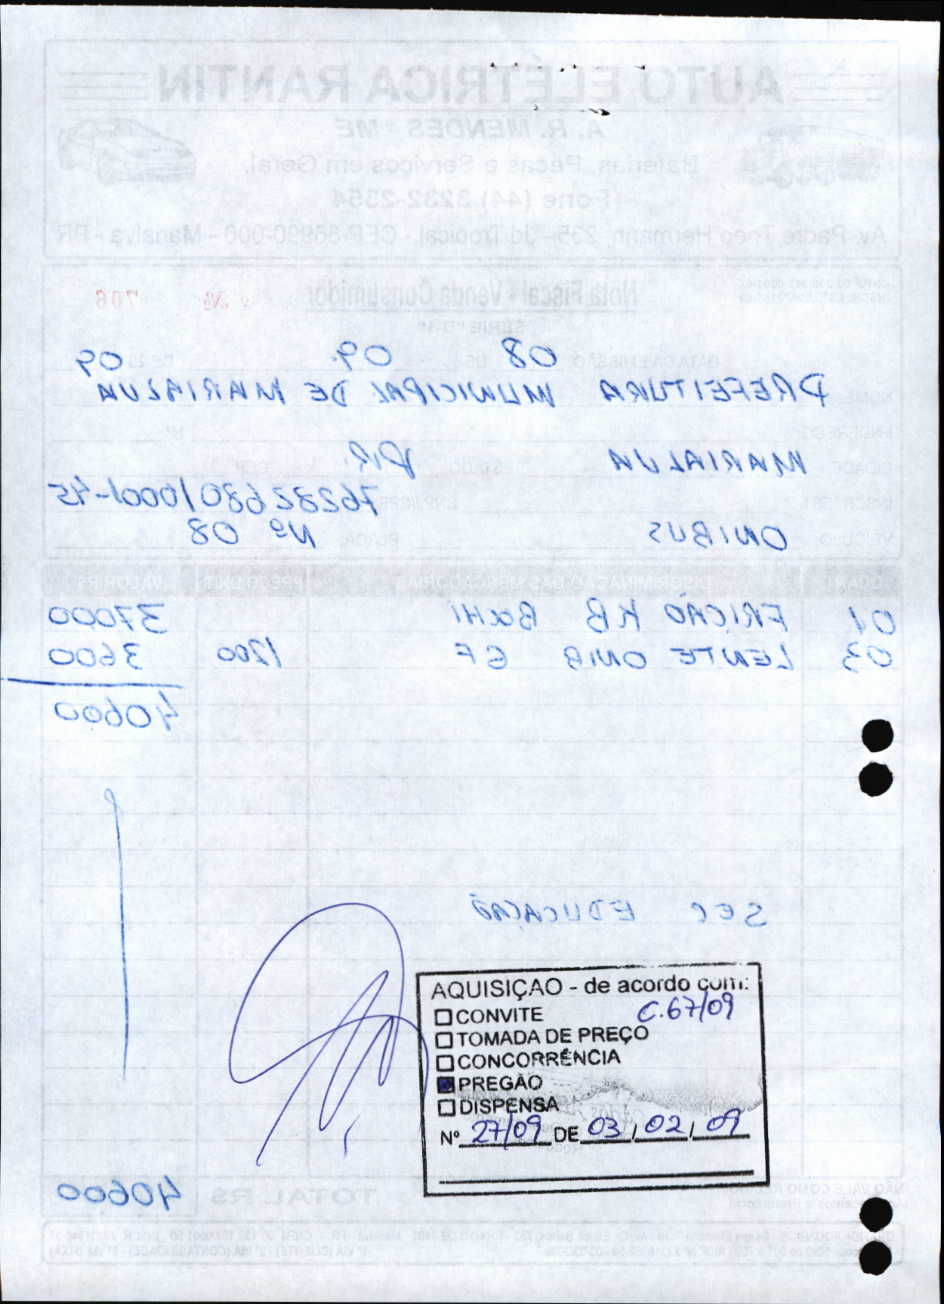 AUTO ELÉTRICA RANTIN
A. R. MENDES - ME
Baterias, Peças e Serviços em Geral.
Fone (44) 3232-2554
Av. Padre Theo Hermann, 235 - Jd Tropical - CEP 86990-000 - Marialva - PR
Nota Fiscal - Venda Consumidor Nº 706
SÉRIE "D-1"
DATA DA EMISSÃO 08 DE 09. DE 20 09
NOME PREFEITURA MUNICIPAL DE MARIALVA
ENDEREÇO Nº
CIDADE MARIALVA ESTADO PR. CEP
76282680/0001-45
VEÍCULO ONIBUS PLACA Nº 08
QUANT. DISCRIMINAÇÃO DAS MERCADORIAS PREÇO UNIT. VALOR R$
01 FRICÃO KB 37000
03 LENTE ONIB GF 1200 3600
40600
SEC EDUCAÇÃO
AQUISIÇÃO - de acordo com:
CONVITE C.67/09
TOMADA DE PREÇO
CONCORRÊNCIA
PREGÃO
DISPENSA
Nº 27/09 DE 03 / 02 / 09
NÃO VALE COMO RECIBO
TOTAL R$ 40600